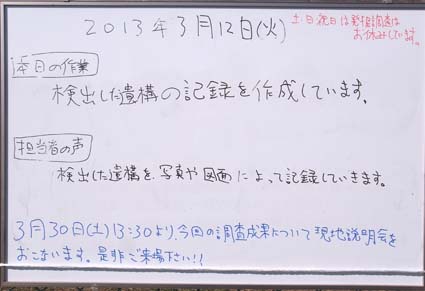 2013年3月12日(火)
土・日・祝日は発掘調査は
お休みしています。
本日の作業
検出した遺構の記録を作成しています。
担当者の声
検出した遺構を、写真や図面によって記録していきます。
3月30日(土)13:30より、今回の調査成果について現地説明会を
おこないます。是非ご来場下さい!!